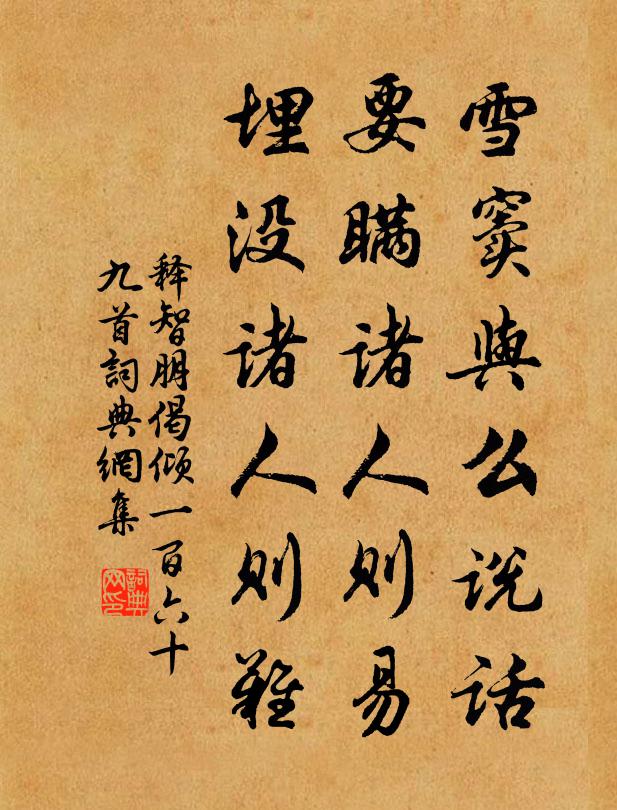 雪窦與么说话
要瞒诸人则易
埋没诸人则難
释智朋偈倾一百六十
九首詞典網集
詞典网印